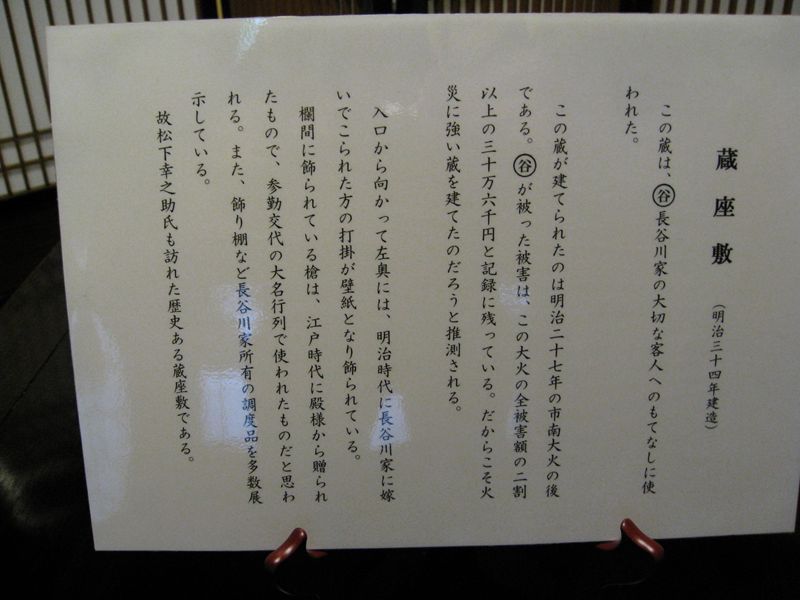 蔵座敷 (明治三十四年建造)
この蔵は、㊎長谷川家の大切な客人へのもてなしに使
われた。
この蔵が建てられたのは明治二十七年の市南大火の後
である。谷が被った被害は、この大火の全被害額の二割
以上の三十万六千円と記録に残っている。だからこそ火
災に強い蔵を建てたのだろうと推測される。
入口から向かって左奥には、明治時代に長谷川家に嫁
いでこられた方の打掛が壁紙となり飾られている。
欄間に飾られている槍は、江戸時代に殿様から贈られ
たもので、参勤交代の大名行列で使われたものだと思わ
れる。また、飾り棚など長谷川家所有の調度品を多数展
示している。
故松下幸之助氏も訪れた歴史ある蔵座敷である。